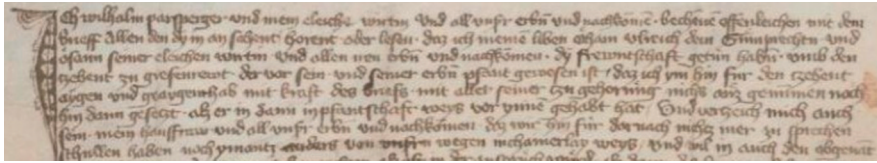 Ich wilhalm parsperger und mein eleiche wirtin und all unsr erbn und nachkomen bechenen offenleichen mit dem
brieff Allen den dy in an sehent horent oder lesen daz ich meinen liben oham ulreich dem und
osann seiner eleichen wirtin und allen iren erbn und nachkomen dy frewntschaft getan habn umb den
czehent zu der vor sein und seiner erbn pfant gewesen ist daz ich ym hin fur den czehent
aygen und geaygent hab mit kraft des briefs mit aller seiner zu gehorung nichs auz genomen noch
hin dann geseczt alz er in dann in pfantschaft weys vor ynne gehabt hat Und verczeich mich auch
sein mein hausfraw und all unsr erbn und nachkomen daz wir hin fur dar nach nichcz mer zu sprechen
schullen haben noch ymantz anders von unsrn wegen in chainerlay weys und wil in auch den obgenant